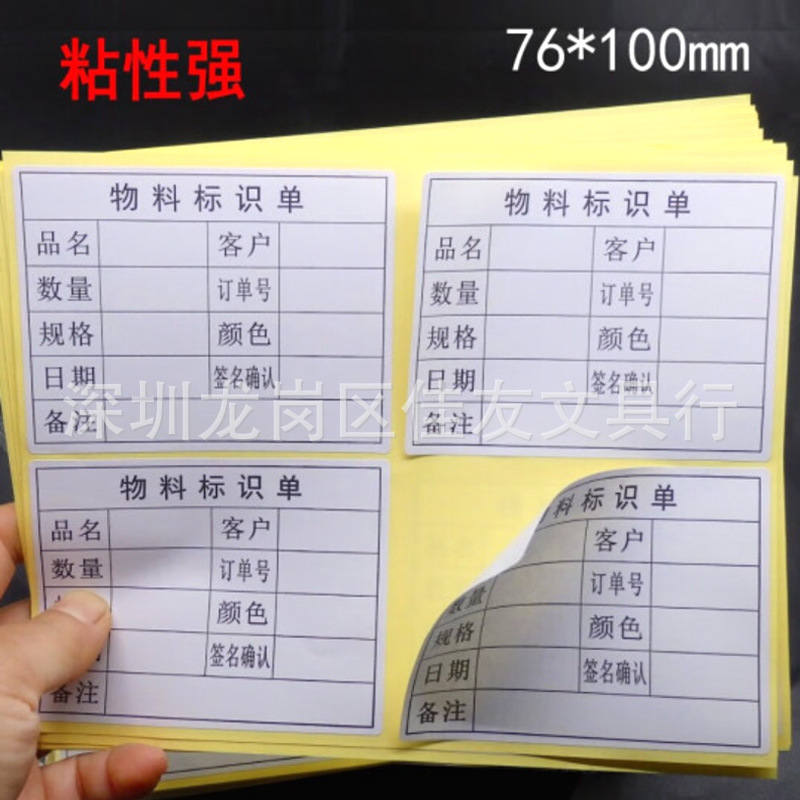 粘性强
76*100mm
物料标识单
品名 客户
数量 订单号
规格 颜色
日期 签名确认
备注
物料标识单
品名 客户
数量 订单号
规格 颜色
日期 签名确认
备注
深圳龙岗区佳友文具行
物料标识单
品名 客户
数量 订单号
颜色
签名确认
备注
料标识单
客户
数量 订单号
规格 颜色
日期 签名确认
备注